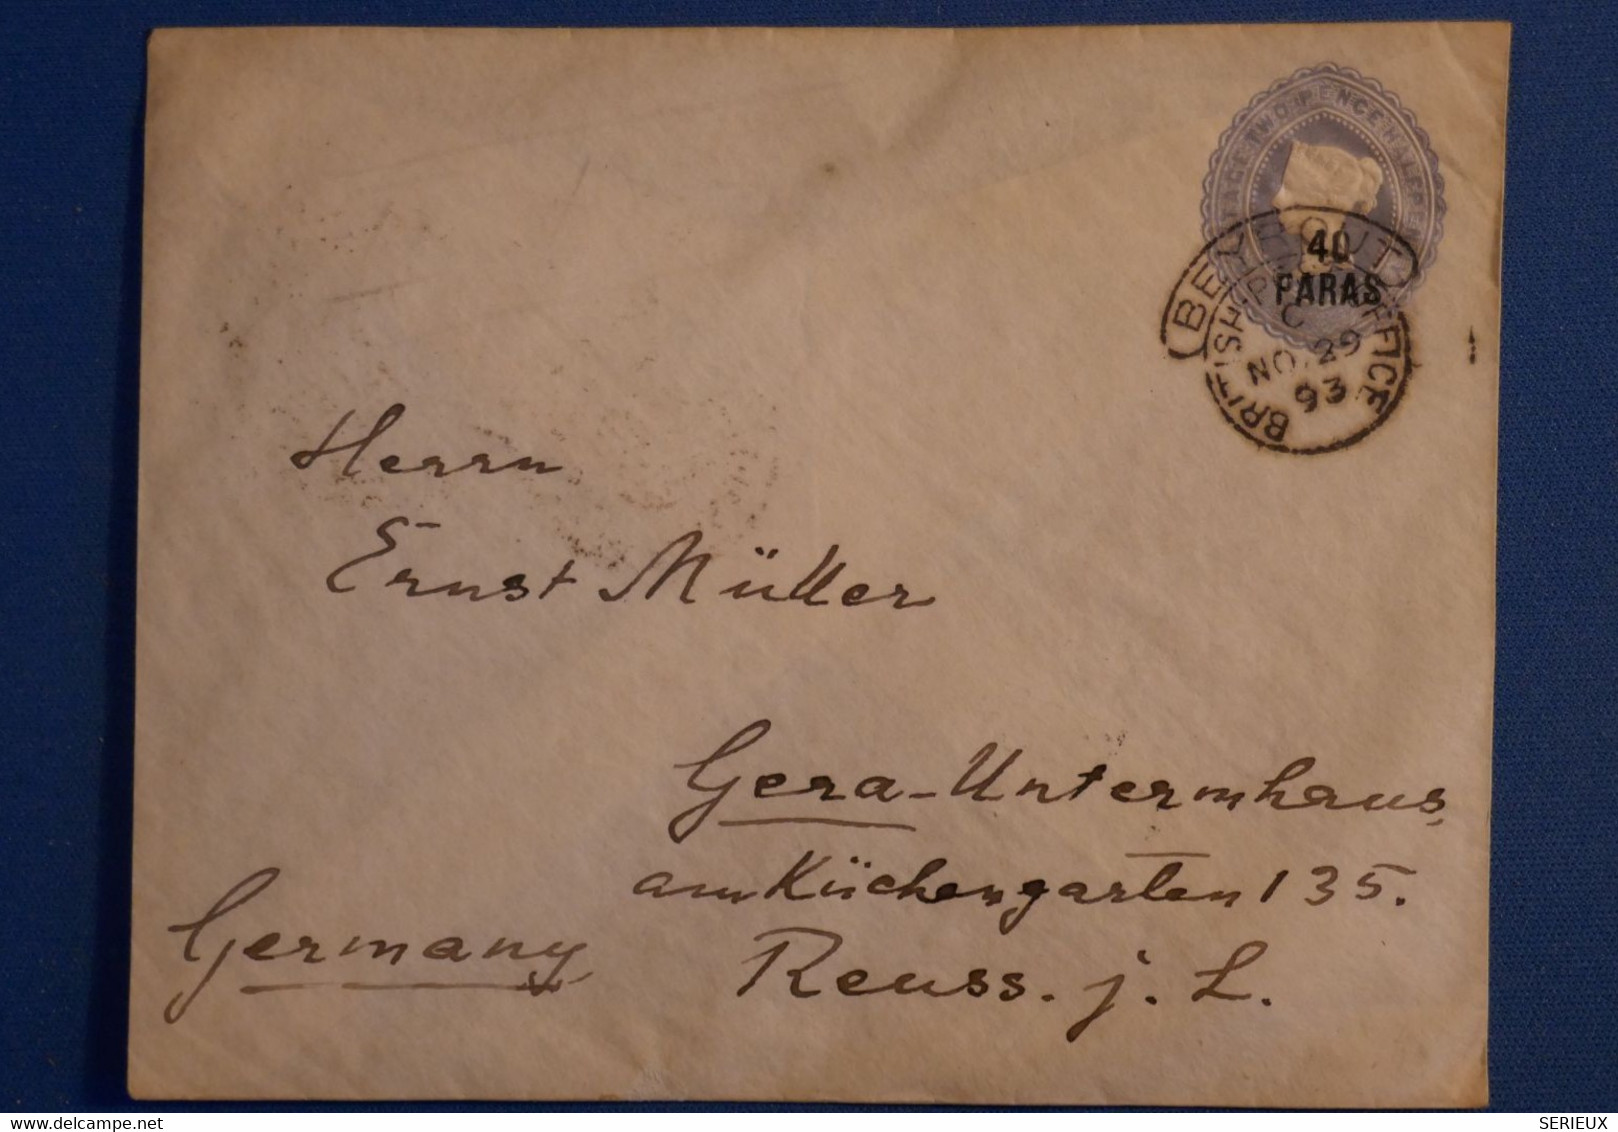 POSTAGE TWO PENCE HALFPENNY
40
PARAS
BEYROUT
BRITISH POST OFFICE
C
NO 29
93
Herrn
Ernst Müller
Gera-Untermhaus,
am Küchengarten 135.
Germany
Reuss. j. L.
delcampe.net
SERIEUX